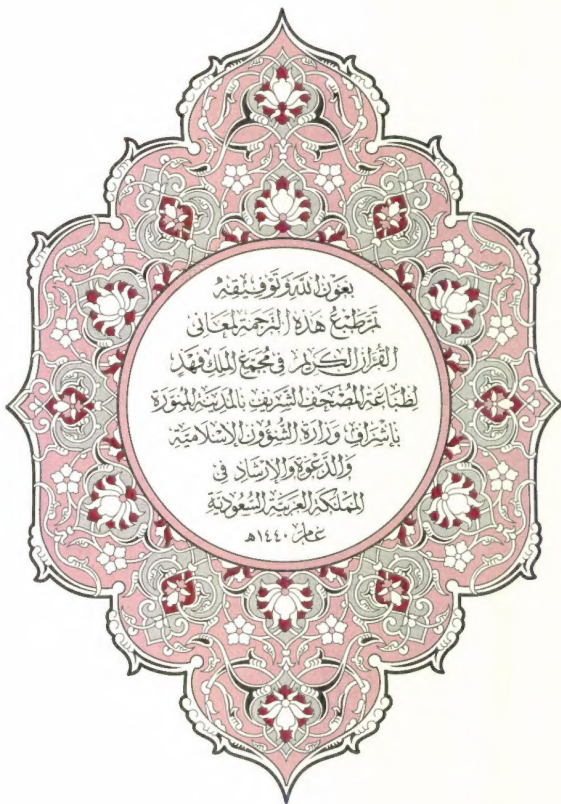 بِعَوْنِ اللَّهِ وَتَوْفِيقِهِ
تَمَّ طَبْعُ هَذِهِ التَّرْجَمَةِ لِمَعَانِي
القُرْآنِ الكَرِيمِ فِي مُجَمَّعِ المَلِكِ فَهْدٍ
لِطِبَاعَةِ المُصْحَفِ الشَّرِيفِ بِالمَدِينَةِ المُنَوَّرَةِ
بِإِشْرَافِ وِزَارَةِ الشُّؤُونِ الإِسْلَامِيَّةِ
وَالدَّعْوَةِ وَالإِرْشَادِ فِي
المَمْلَكَةِ العَرَبِيَّةِ السُّعُودِيَّةِ
عَامَ ١٤٤٠هـ